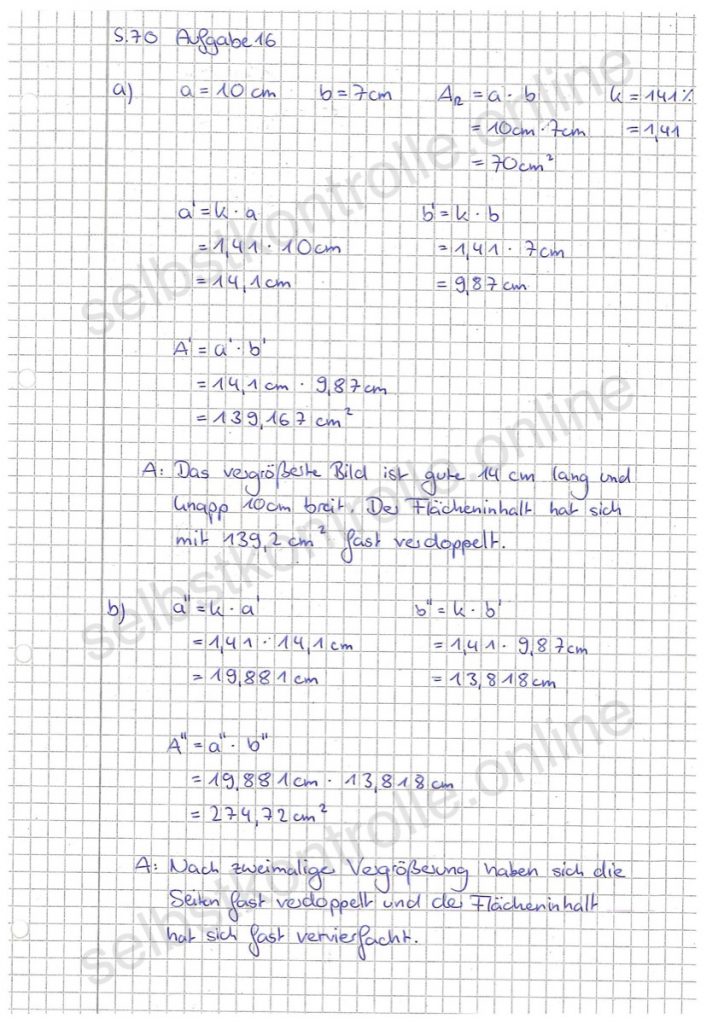 S.70 Aufgabe 16
a) a = 10 cm b = 7cm A_R = a · b k = 141%
= 10cm · 7cm = 1,41
= 70cm²
a' = k · a b' = k · b
= 1,41 · 10cm = 1,41 · 7cm
= 14,1cm = 9,87cm
A' = a' · b'
= 14,1cm · 9,87cm
= 139,167 cm²
A: Das vergrößerte Bild ist gute 14 cm lang und
knapp 10cm breit. Der Flächeninhalt hat sich
mit 139,2 cm² fast verdoppelt.
b) a'' = k · a' b'' = k · b'
= 1,41 · 14,1cm = 1,41 · 9,87cm
= 19,881cm = 13,818cm
A'' = a'' · b''
= 19,881cm · 13,818cm
= 274,72cm²
A: Nach zweimalige Vergrößerung haben sich die
Seiten fast verdoppelt und der Flächeninhalt
hat sich fast vervierfacht.
selbstkontrolle.online
selbstkontrolle.online
selbstkontrolle.online